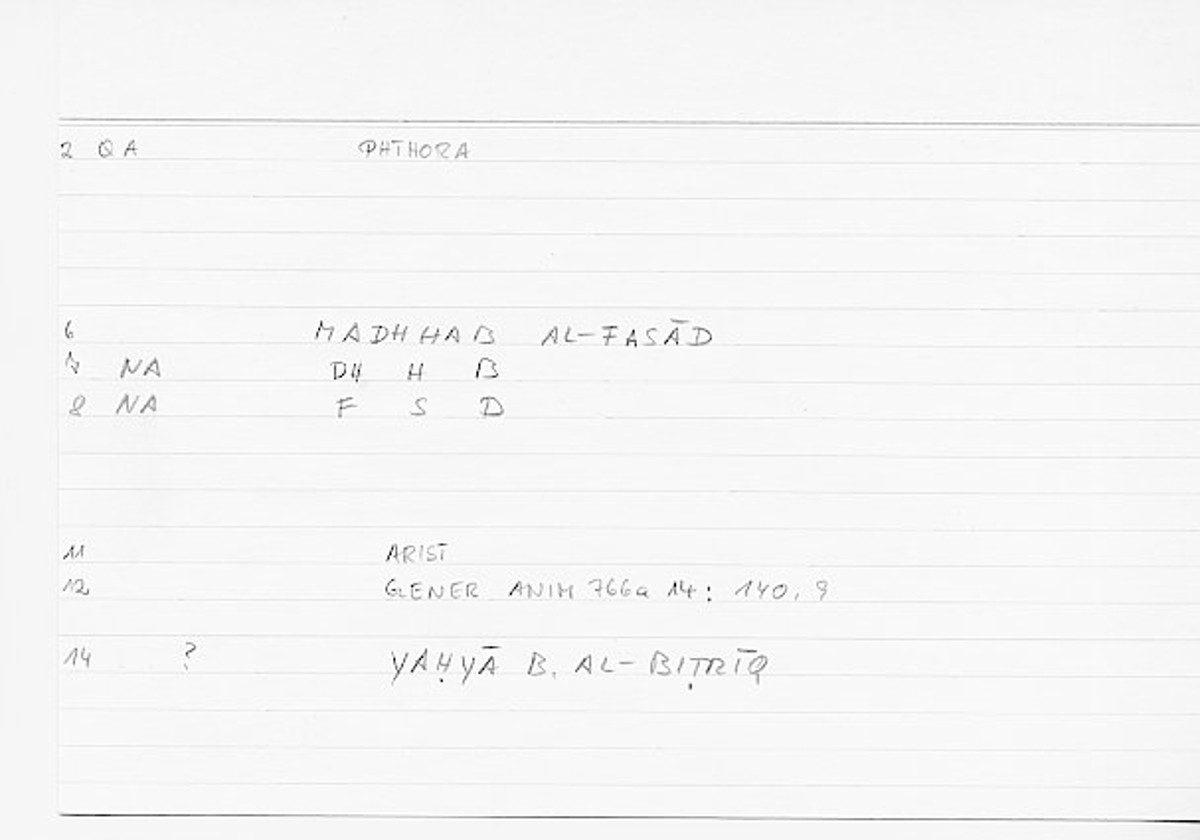 2 QA PHTHORA
6 MADHHAB AL-FASĀD
7 NA DH H B
8 NA F S D
11 ARIST
12 GENER ANIM 766a 14: 140,9
14 ? YAḤYĀ B. AL-BIṬRĪQ